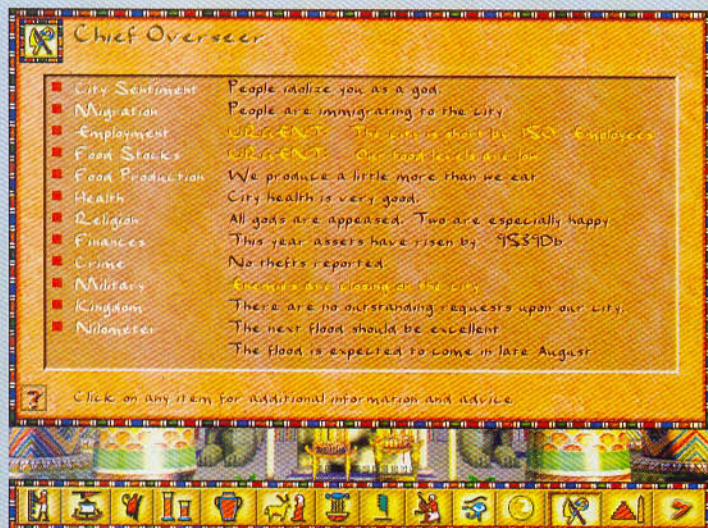 Chief Overseer
City Sentiment People idolize you as a god.
Migration People are immigrating to the city
Employment URGENT The city is short by 150 Employees
Food Stocks URGENT Our food levels are low
Food Production We produce a little more than we eat
Health City health is very good.
Religion All gods are appeased. Two are especially happy
Finances This year assets have risen by 9539Db
Crime No thefts reported.
Military Enemies are closing on the city
Kingdom There are no outstanding requests upon our city.
Nilometer The next flood should be excellent
The flood is expected to come in late August
? Click on any item for additional information and advice